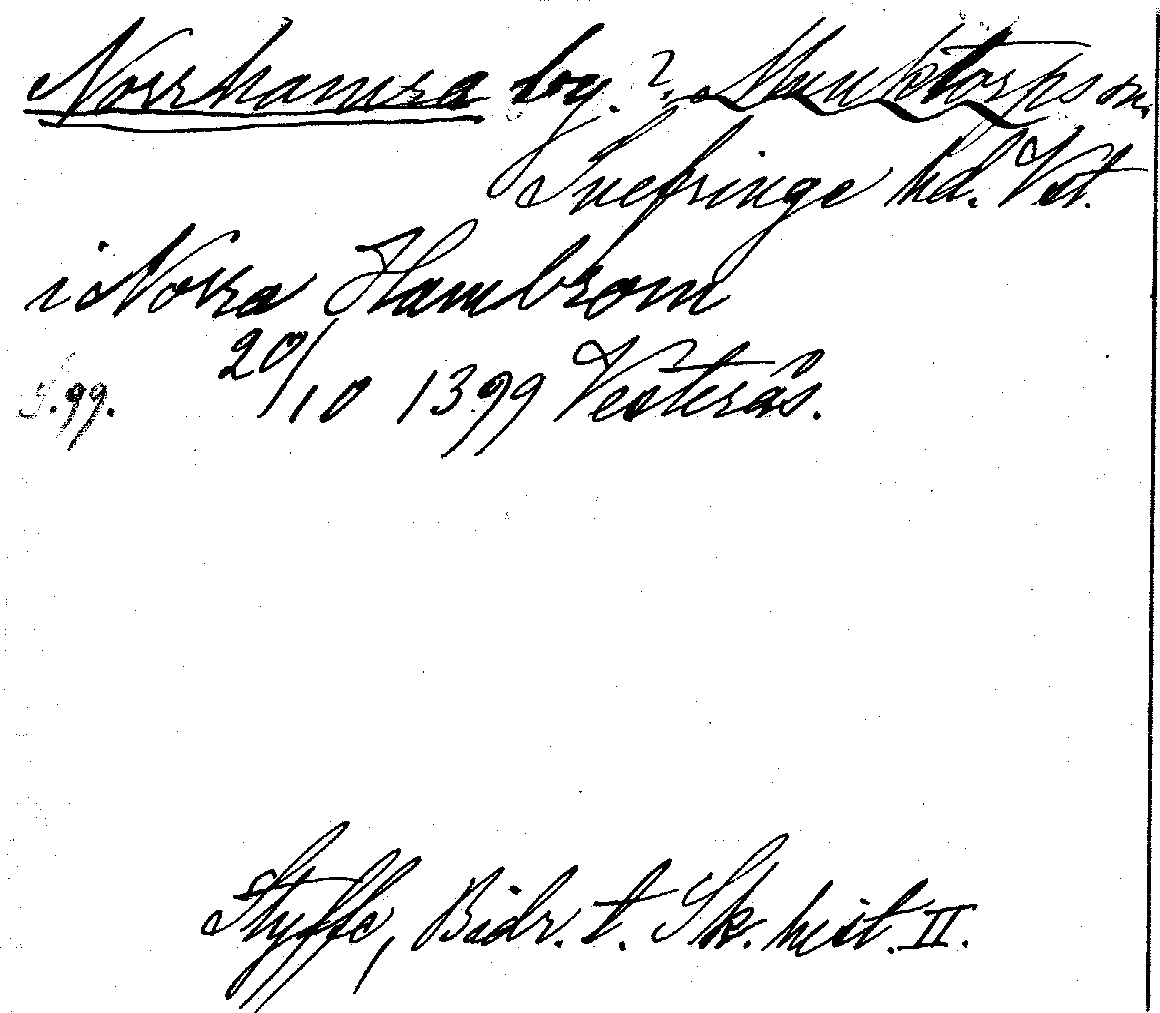 Norrhamra by. ? Munktorps sn.
Snefringe hd. Vst.
i Norra Hambrom
S. 99. 20/10 1399 Vesterås.
Styffe, Bidr. t. Sk. hist. II.